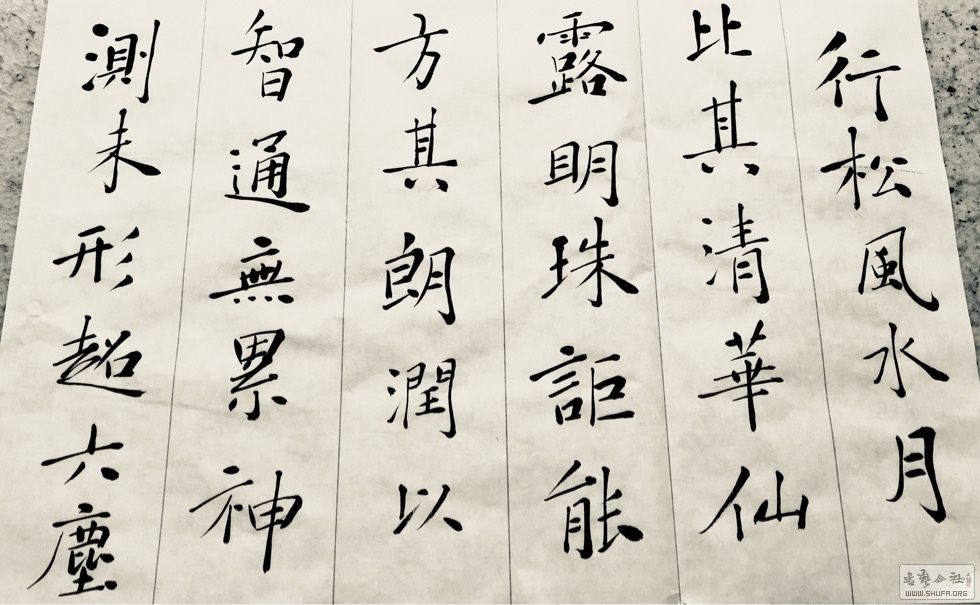 行松風水月
比其清華仙
露明珠詎能
方其朗潤以
智通無累神
測未形超六塵
WWW.SHUFA.ORG